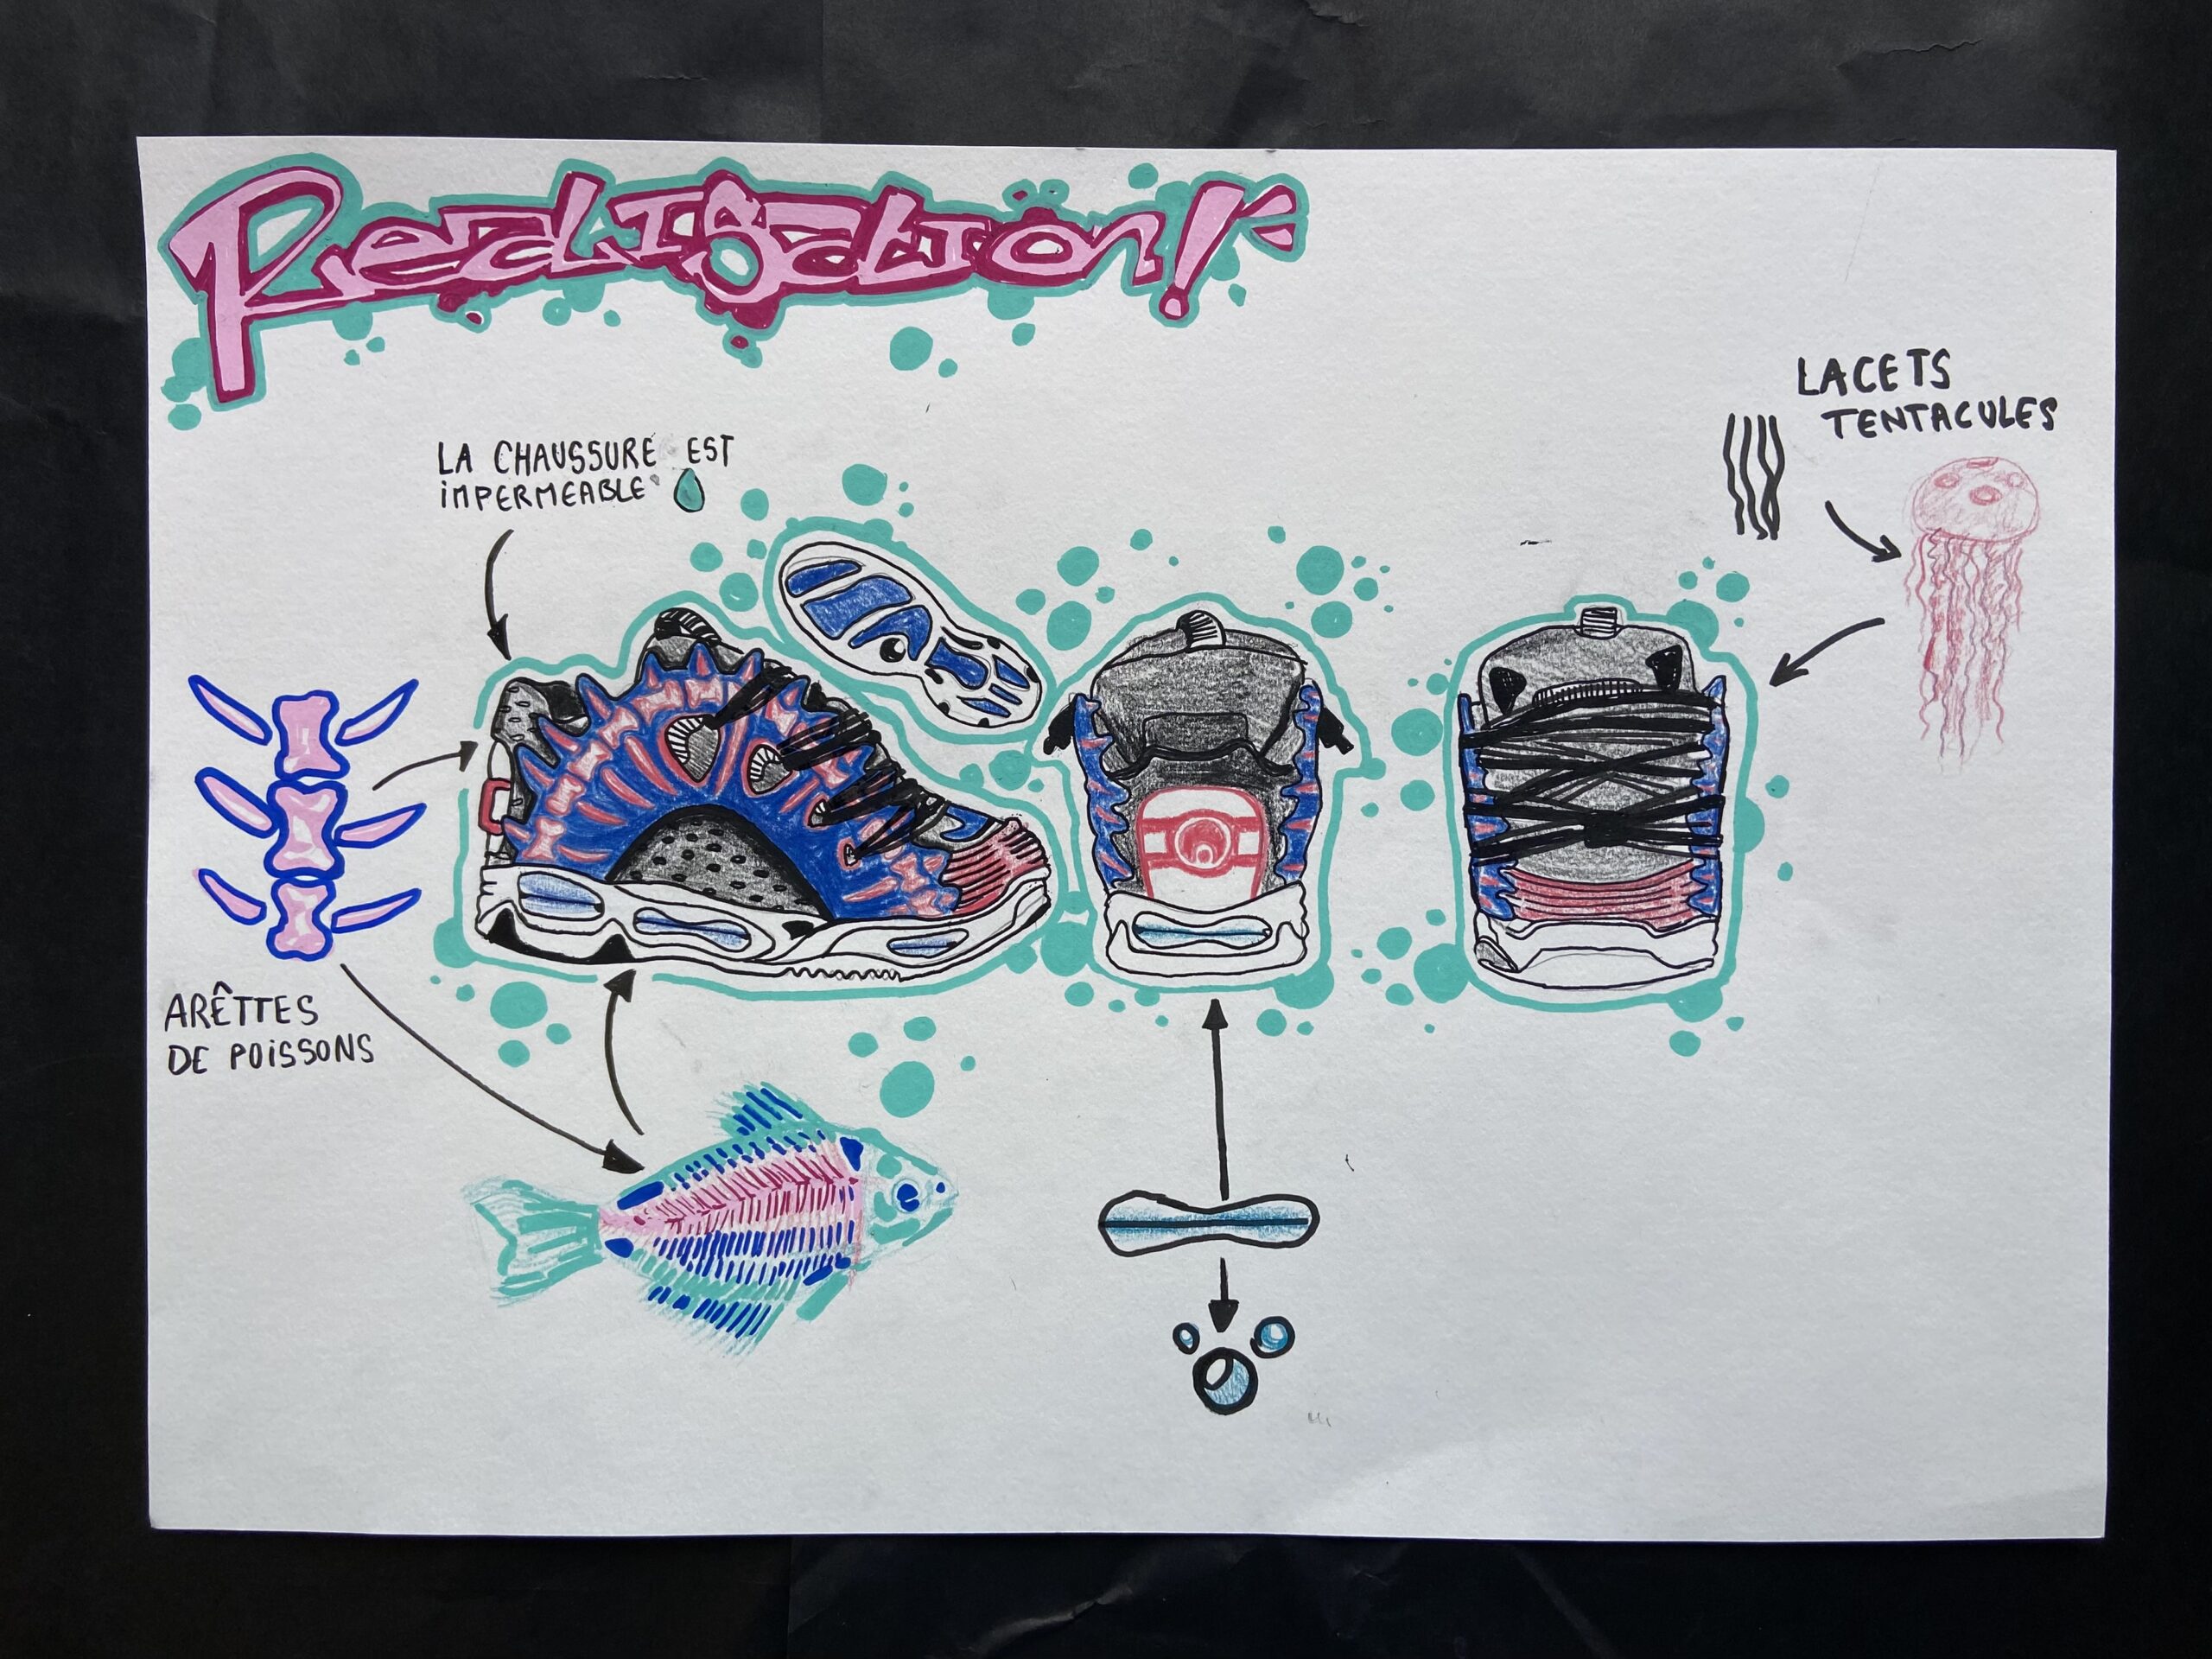 Realisation!
LA CHAUSSURE EST
IMPERMEABLE
LACETS
TENTACULES
ARÊTTES
DE POISSONS